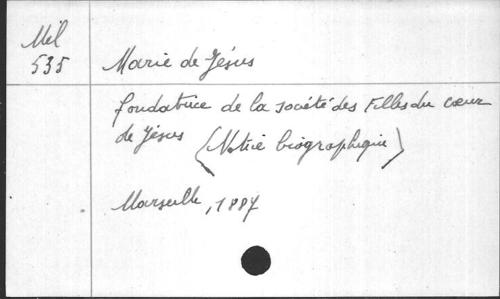 Mél
535
Marie de Jésus
fondatrice de la société des Filles du cœur
de Jésus (Notice biographique)
Marseille, 1887